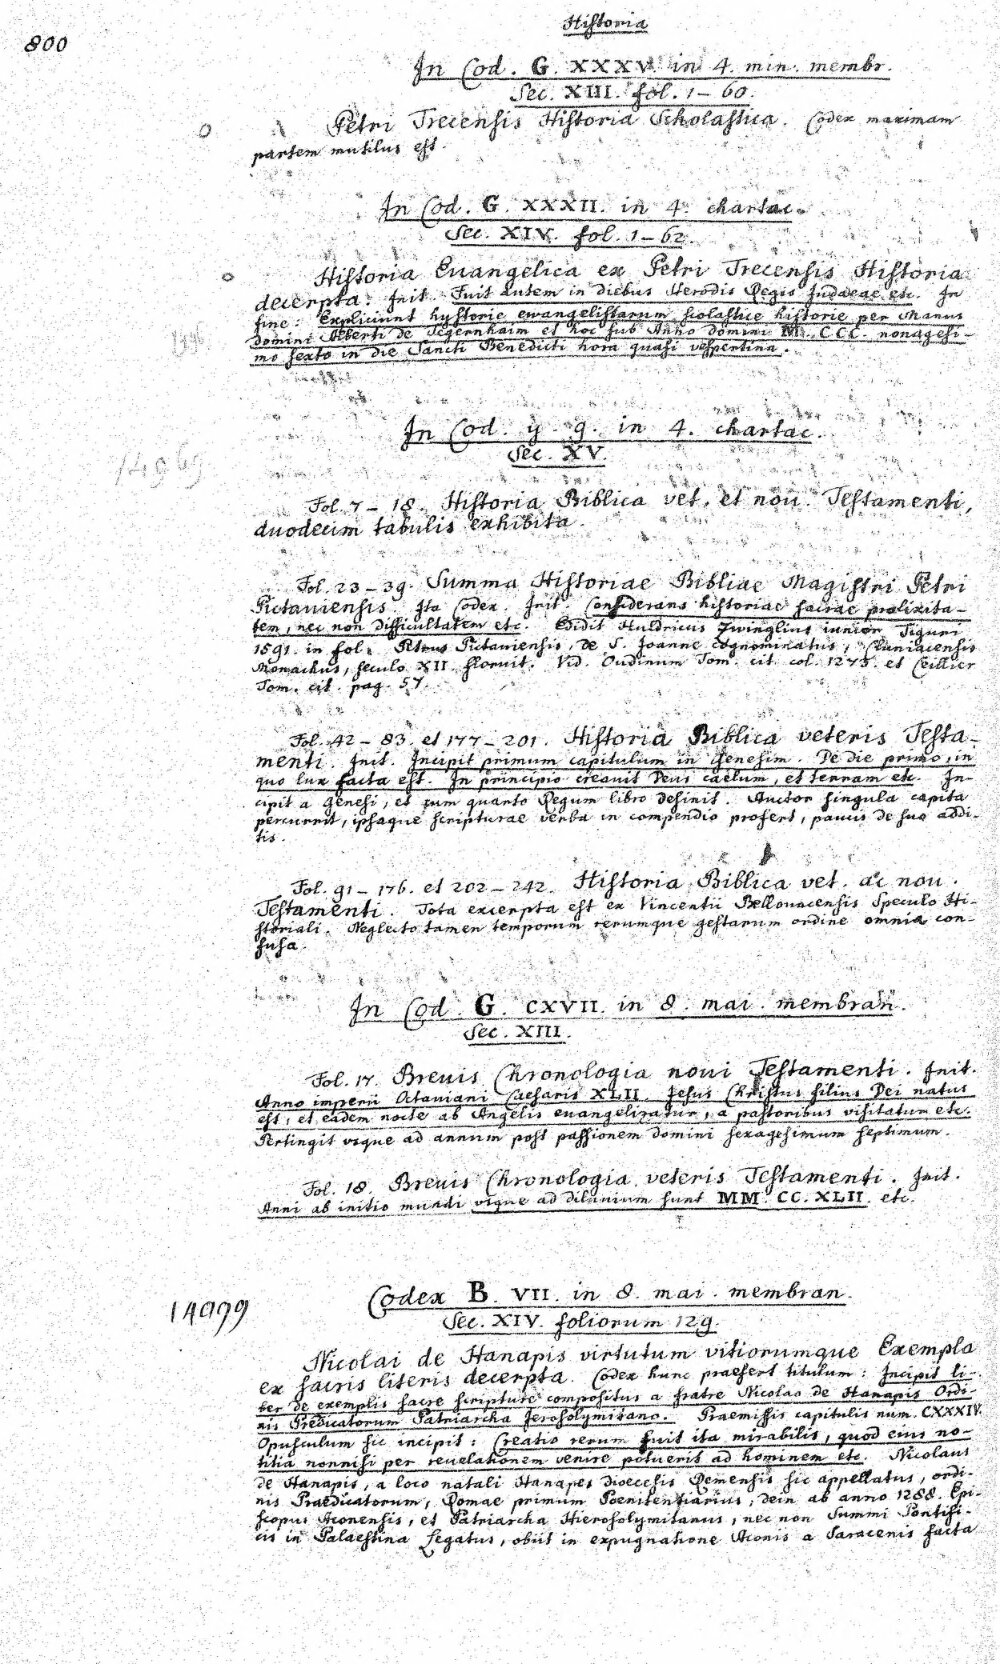 Historia
800
In Cod. G. XXXV. in 4. min. membr.
Sec. XIII. fol. 1–60.
Petri Trecensis Historia Scholastica. Codex maximam
partem mutilus est.
In Cod. G. XXXII. in 4. chartac.
Sec. XIV. fol. 1–62.
Historia Euangelica ex Petri Trecensis Historia
decerpta. Init. Fuit autem in diebus Herodis Regis Judaeae etc. In
fine: Expliciunt hystorie ewangelistarum scolastice historie per Manus
domini Alberti de Tegernhaim et hoc sub Anno domini M. CCC. nonagesi-
mo sexto in die Sancti Benedicti hora quasi vespertina.
In Cod. y. 9. in 4. chartac.
Sec. XV.
14969
Fol. 7–18. Historia Biblica vet. et nou. Testamenti,
duodecim tabulis exhibita.
Fol. 23–39. Summa Historiae Bibliae Magistri Petri
Pictauiensis. Ita Codex. Init. Considerans historiae sacrae prolixita-
tem, nec non difficultatem etc. Edidit Huldricus Zwinglius iunior Tiguri
1591. in fol. Petrus Pictauiensis, de S. Joanne cognominatus, Cluniacensis
Monachus, seculo XII. floruit. Vid. Oudinum Tom. cit. col. 1275. et Ceillier
Tom. cit. pag. 57.
Fol. 42–83. et 177–201. Historia Biblica veteris Testa-
menti. Init. Incipit primum capitulum in Genesim. De die primo, in
quo lux facta est. In principio creauit Deus caelum, et terram etc. In-
cipit a Genesi, et cum quarto Regum libro desinit. Auctor singula capita
percurrit, ipsaque scripturae verba in compendio profert, paucis de suo addi-
tis.
Fol. 91–176. et 202–242. Historia Biblica vet. ac nou.
Testamenti. Tota excerpta est ex Vincentii Bellouacensis Speculo Hi-
storiali. Neglecto tamen temporum rerumque gestarum ordine omnia con-
fusa.
In Cod. G. CXVII. in 8. mai. membran.
Sec. XIII.
Fol. 17. Breuis Chronologia noui Testamenti. Init.
Anno imperii Octauiani Caesaris XLII. Jesus Christus filius Dei natus
est, et eadem nocte ab Angelis euangelizatur, a pastoribus visitatur etc.
Pertingit vsque ad annum post passionem domini sexagesimum septimum.
Fol. 18. Breuis Chronologia veteris Testamenti. Init.
Anni ab initio mundi vsque ad diluuium sunt MM. CC. XLII. etc.
Codex B. VII. in 8. mai. membran.
14979
Sec. XIV. foliorum 129.
Nicolai de Hanapis virtutum vitiorumque Exempla
ex sacris literis decerpta. Codex hunc praefert titulum: Incipit li-
ber de exemplis sacre scripture compositus a fratre Nicolao de Hanapis Ordi-
nis Predicatorum Patriarcha Jerosolymitano. Praemissis capitulis num. CXXXIV.
Opusculum sic incipit: Creatio rerum fuit ita mirabilis, quod eius no-
titia nonnisi per reuelationem venire potuerit ad hominem etc. Nicolaus
de Hanapis, a loco natali Hanapes dioecesis Remensis sic appellatus, ordi-
nis Praedicatorum, Romae primum Poenitentiarius, dein ab anno 1288. Epi-
scopus Aconensis, et Patriarcha Hierosolymitanus, nec non Summi Pontifi-
cis in Palaestina Legatus, obiit in expugnatione Aconis a Saracenis facta